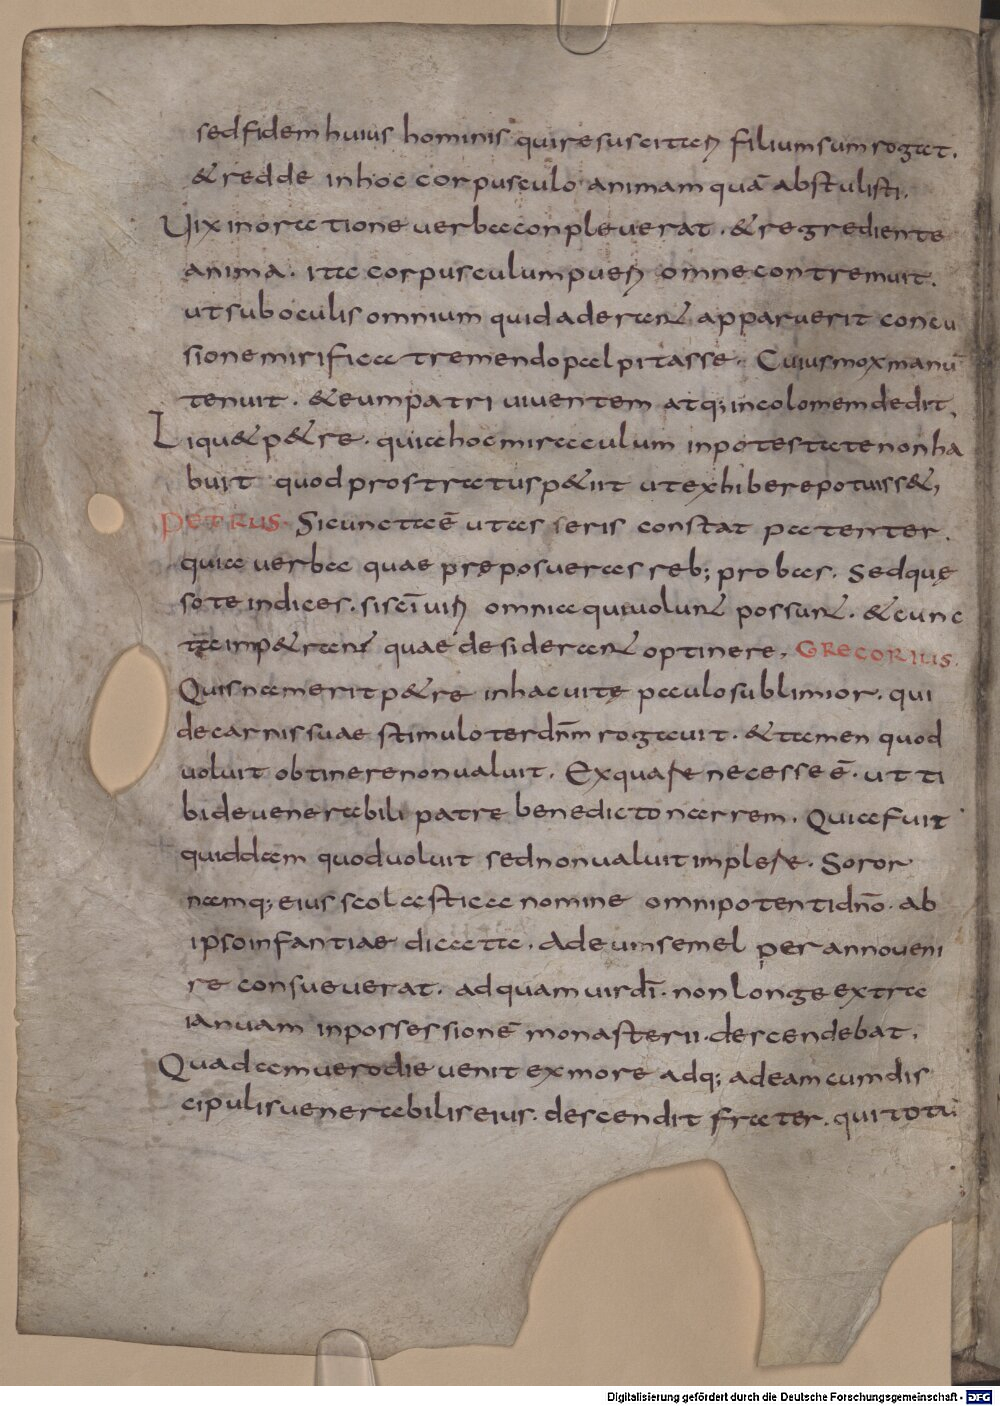 sed fidem huius hominis qui resuscitari filium suum rogat.
& redde in hoc corpusculo animam quā abstulisti.
Uix in oratione uerba conpleuerat. & regrediente
anima. ita corpusculum pueri omne contremuit.
ut sub oculis omnium qui aderant apparuerit concu
sione mirifica tremendo palpitasse. Cuius mox manū
tenuit. & eum patri uiuentem atq; incolomem dedit.
Liqu& p&re. quia hoc miraculum in potestate non ha
buit quod prostratus p&iit ut exhibere potuiss&,
PETRUS. Sic cuncta ē ut asseris constat patenter.
quia uerba quae preposueras reb; probas. Sed quę
so te indices. si sc̄i uiri omnia qui uolunt possunt. & cunc
ta imp&rant quae desiderant optinere. GRECORIUS.
Quis nam erit p&re in hac uita paulo sublimior. qui
de carnis suae stimulo ter dn̄m rogauit. & tamen quod
uoluit obtinere non ualuit. Ex qua re necesse ē. ut ti
bi de uenerabili patre benedicto narrem. Quia fuit
quiddam quod uoluit sed non ualuit implere. Soror
namq; eius scolastica nomine omnipotenti dn̄o. ab
ipso infantiae dicata. Ad eum semel per anno ueni
re consueuerat. ad quam uir dī. non longe extra
ianuam in possessionē monasterii. descendebat.
Quadam uero die uenit ex more adq; ad eam cum dis
cipulis uenerabilis eius. descendit frater. qui totū
Digitalisierung gefördert durch die Deutsche Forschungsgemeinschaft - DFG